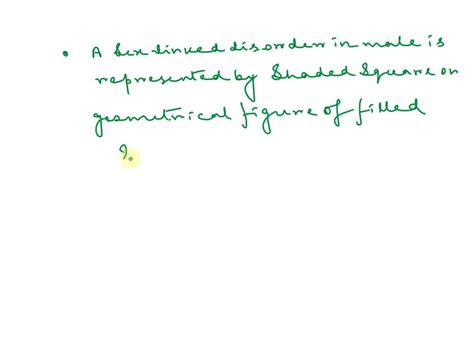 • A Sex linked disorder in male is
represented by Shaded Square or
geometrical figure of filled